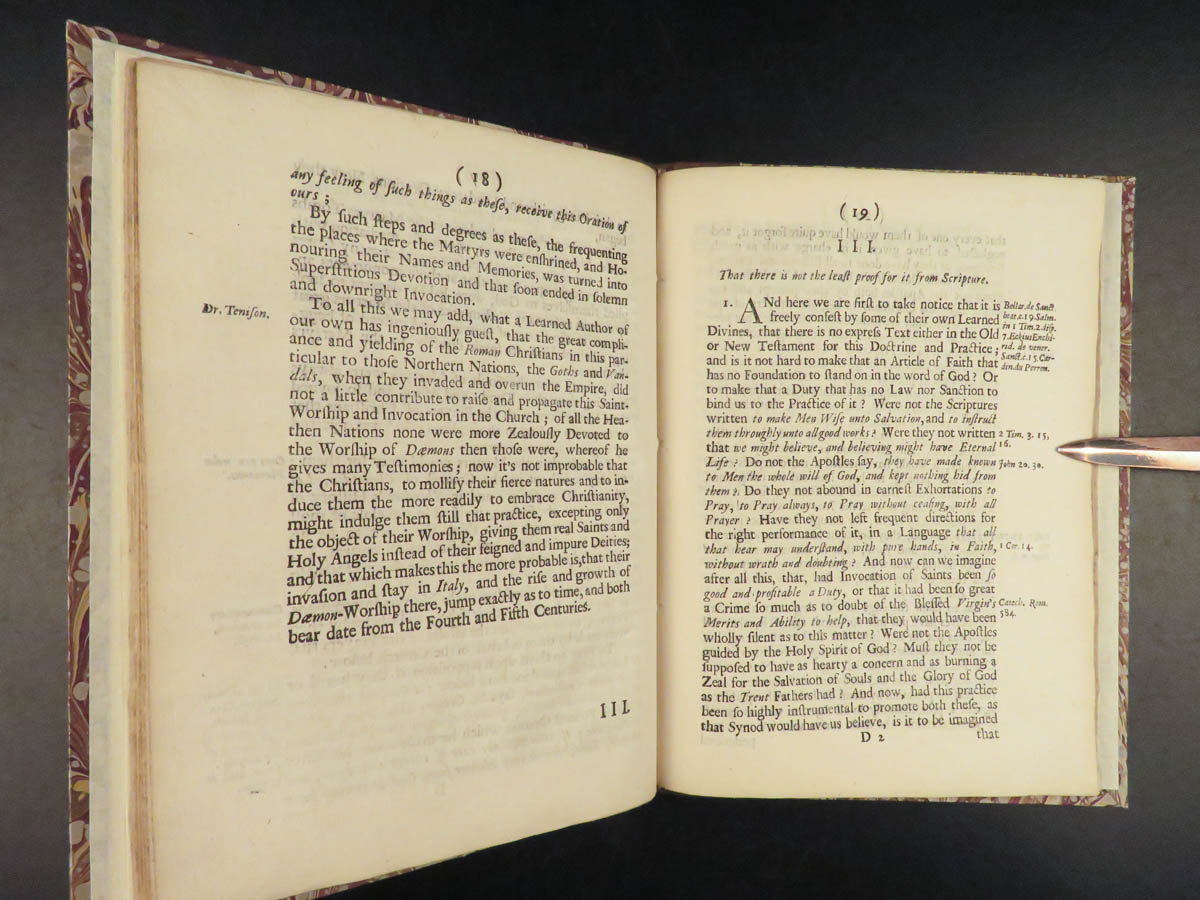 (18)
any feeling of ſuch things as theſe, receive this Oration of
ours ;
By ſuch ſteps and degrees as theſe, the frequenting
the places where the Martyrs were enſhrined, and Ho-
nouring their Names and Memories, was turned into
Superſtitious Devotion and that ſoon ended in ſolemn
and downright Invocation.
Dr. Teniſon.
To all this we may add, what a Learned Author of
our own has ingeniouſly gueſt, that the great compli-
ance and yielding of the Roman Chriſtians in this par-
ticular to thoſe Northern Nations, the Goths and Van-
dals, when they invaded and overun the Empire, did
not a little contribute to raiſe and propagate this Saint-
Worſhip and Invocation in the Church ; of all the Hea-
then Nations none were more Zealouſly Devoted to
the Worſhip of Dæmons then thoſe were, whereof he
gives many Teſtimonies ; now it's not improbable that
the Chriſtians, to mollify their fierce natures and to in-
duce them the more readily to embrace Chriſtianity,
might indulge them ſtill that practice, excepting only
the object of their Worſhip, giving them real Saints and
Holy Angels inſtead of their feigned and impure Deities;
and that which makes this the more probable is,that their
invaſion and ſtay in Italy, and the riſe and growth of
Dæmon-Worſhip there, jump exactly as to time, and both
bear date from the Fourth and Fifth Centuries.
III.
(19)
III.
That there is not the leaſt proof for it from Scripture.
1. ANd here we are firſt to take notice that it is
freely confeſt by ſome of their own Learned
Divines, that there is no expreſs Text either in the Old
or New Teſtament for this Doctrine and Practice ;
and is it not hard to make that an Article of Faith that
has no Foundation to ſtand on in the word of God ? Or
to make that a Duty that has no Law nor Sanction to
bind us to the Practice of it ? Were not the Scriptures
written to make Men Wiſe unto Salvation, and to inſtruct
them throughly unto all good works ? Were they not written
that we might believe, and believing might have Eternal
Life ? Do not the Apoſtles ſay, they have made known
to Men the whole will of God, and kept nothing hid from
them ? Do they not abound in earneſt Exhortations to
Pray, to Pray always, to Pray without ceaſing, with all
Prayer ? Have they not left frequent directions for
the right performance of it, in a Language that all
that hear may underſtand, with pure hands, in Faith,
without wrath and doubting ? And now can we imagine
after all this, that, had Invocation of Saints been ſo
good and profitable a Duty, or that it had been ſo great
a Crime ſo much as to doubt of the Bleſſed Virgin's
Merits and Ability to help, that they would have been
wholly ſilent as to this matter ? Were not the Apoſtles
guided by the Holy Spirit of God ? Muſt they not be
ſuppoſed to have as hearty a concern and as burning a
Zeal for the Salvation of Souls and the Glory of God
as the Trent Fathers had ? And now, had this practice
been ſo highly inſtrumental to promote both theſe, as
that Synod would have us believe, is it to be imagined
D 2 that
Bellar. de Sanct.
beat.c.19.Salm.
in 1 Tim.2.diſp.
7.Eckius Enchi-
rid. de vener.
Sanct.c.15.Car-
din.du Perron.
2 Tim. 3. 15,
16.
John 20. 30.
1 Cor. 14.
Catech. Rom.
584.